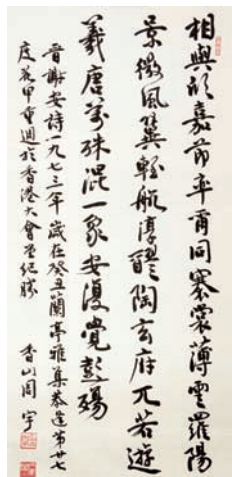 相與欣嘉節率爾同褰裳薄雲羅陽
景微風翼輕航淳醪陶玄府兀若遊
羲唐萬殊混一象安復覺彭殤
晉謝安詩一九七三年歲在癸丑蘭亭雅集恭逢第廿七
度花甲重週於香港大會堂紀勝 香山周宇